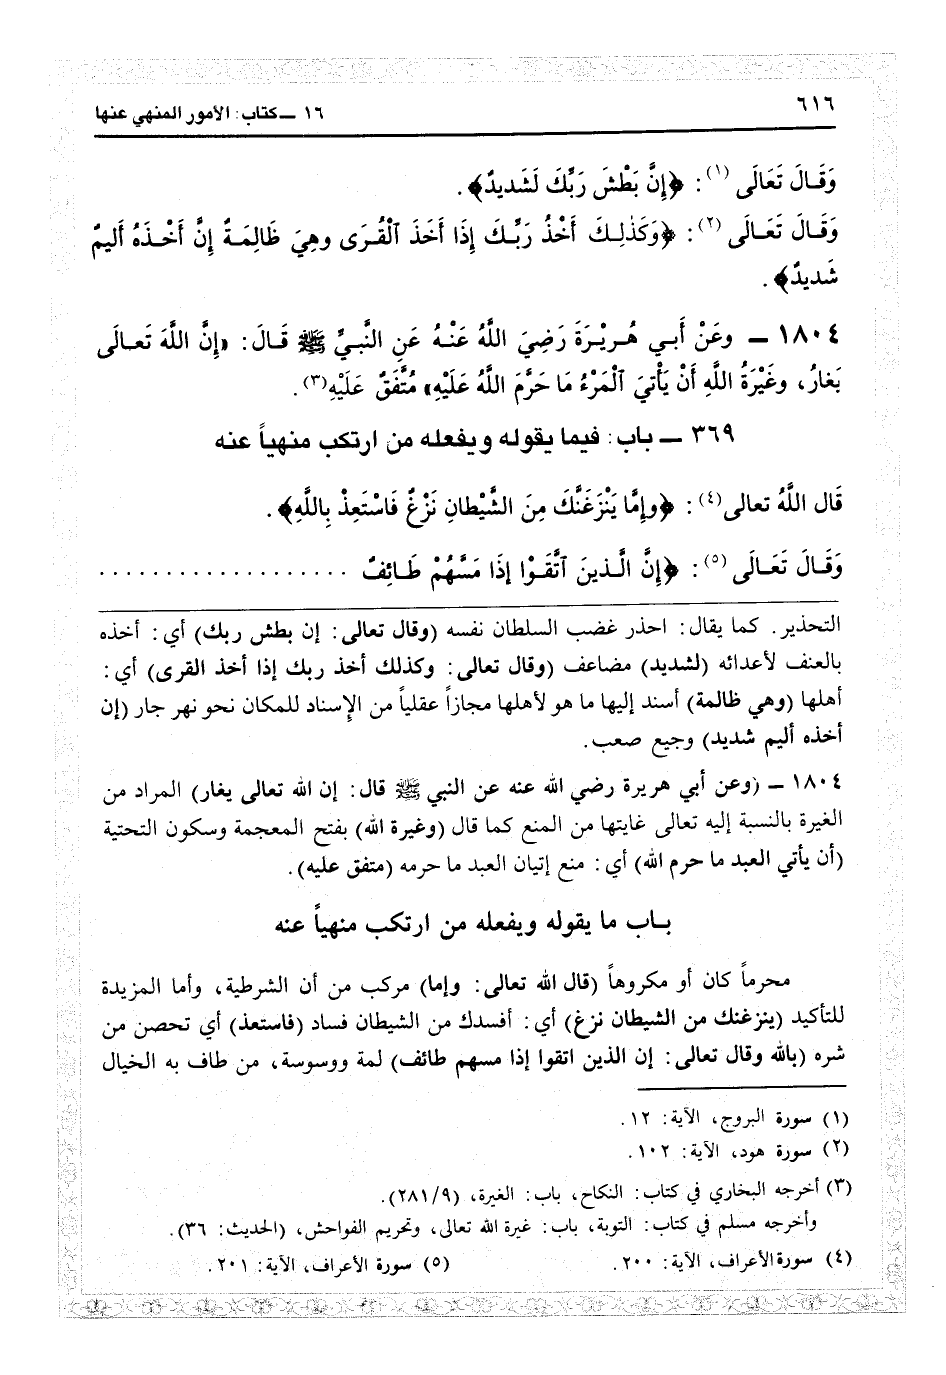 ٦١٦
١٦ ــ كتاب: الأمور المنهي عنها
وَقَالَ تَعَالَى (١): ﴿إِنَّ بَطْشَ رَبِّكَ لَشَدِيدٌ﴾.
وَقَالَ تَعَالَى (٢): ﴿وَكَذٰلِكَ أَخْذُ رَبِّكَ إِذَا أَخَذَ ٱلْقُرَى وهِيَ ظَالِمَةٌ إِنَّ أَخْذَهُ أَلِيمٌ
شَدِيدٌ﴾.
١٨٠٤ ــ وعَنْ أَبي هُرَيْرَةَ رَضِيَ اللَّهُ عَنْهُ عَنِ النَّبِيِّ ﷺ قَالَ: «إِنَّ اللَّهَ تَعَالَى
يَغَارُ، وغَيْرَةُ اللَّهِ أَنْ يَأْتِيَ ٱلْمَرْءُ مَا حَرَّمَ اللَّهُ عَلَيْهِ» مُتَّفَقٌ عَلَيْهِ(٣).
٣٦٩ ــ باب: فيما يقوله ويفعله من ارتكب منهياً عنه
قَال اللَّهُ تعالى(٤): ﴿وإِمَّا يَنْزَغَنَّكَ مِنَ الشَّيْطانِ نَزْغٌ فَاسْتَعِذْ بِاللَّهِ﴾.
وَقَالَ تَعَالَى (٥): ﴿إِنَّ الَّذِينَ ٱتَّقَوْا إِذَا مَسَّهُمْ طَائِفٌ ...................
التحذير. كما يقال: احذر غضب السلطان نفسه (وقال تعالى: إن بطش ربك) أي: أخذه
بالعنف لأعدائه (لشديد) مضاعف (وقال تعالى: وكذلك أخذ ربك إذا أخذ القرى) أي:
أهلها (وهي ظالمة) أسند إليها ما هو لأهلها مجازاً عقلياً من الإِسناد للمكان نحو نهر جار (إن
أخذه أليم شديد) وجيع صعب.
١٨٠٤ ــ (وعن أبي هريرة رضي الله عنه عن النبي ﷺ قال: إن الله تعالى يغار) المراد من
الغيرة بالنسبة إليه تعالى غايتها من المنع كما قال (وغيرة الله) بفتح المعجمة وسكون التحتية
(أن يأتي العبد ما حرم الله) أي: منع إتيان العبد ما حرمه (متفق عليه).
بـاب ما يقوله ويفعله من ارتكب منهياً عنه
محرماً كان أو مكروهاً (قال الله تعالى: وإما) مركب من أن الشرطية، وأما المزيدة
للتأكيد (ينزغنك من الشيطان نزغ) أي: أفسدك من الشيطان فساد (فاستعذ) أي تحصن من
شره (بالله وقال تعالى: إن الذين اتقوا إذا مسهم طائف) لمة ووسوسة، من طاف به الخيال
(١) سورة البروج، الآية: ١٢.
(٢) سورة هود، الآية: ١٠٢.
(٣) أخرجه البخاري في كتاب: النكاح، باب: الغيرة، (٢٨١/٩).
وأخرجه مسلم في كتاب: التوبة، باب: غيرة الله تعالى، وتحريم الفواحش، (الحديث: ٣٦).
(٤) سورة الأعراف، الآية: ٢٠٠.
(٥) سورة الأعراف، الآية: ٢٠١.